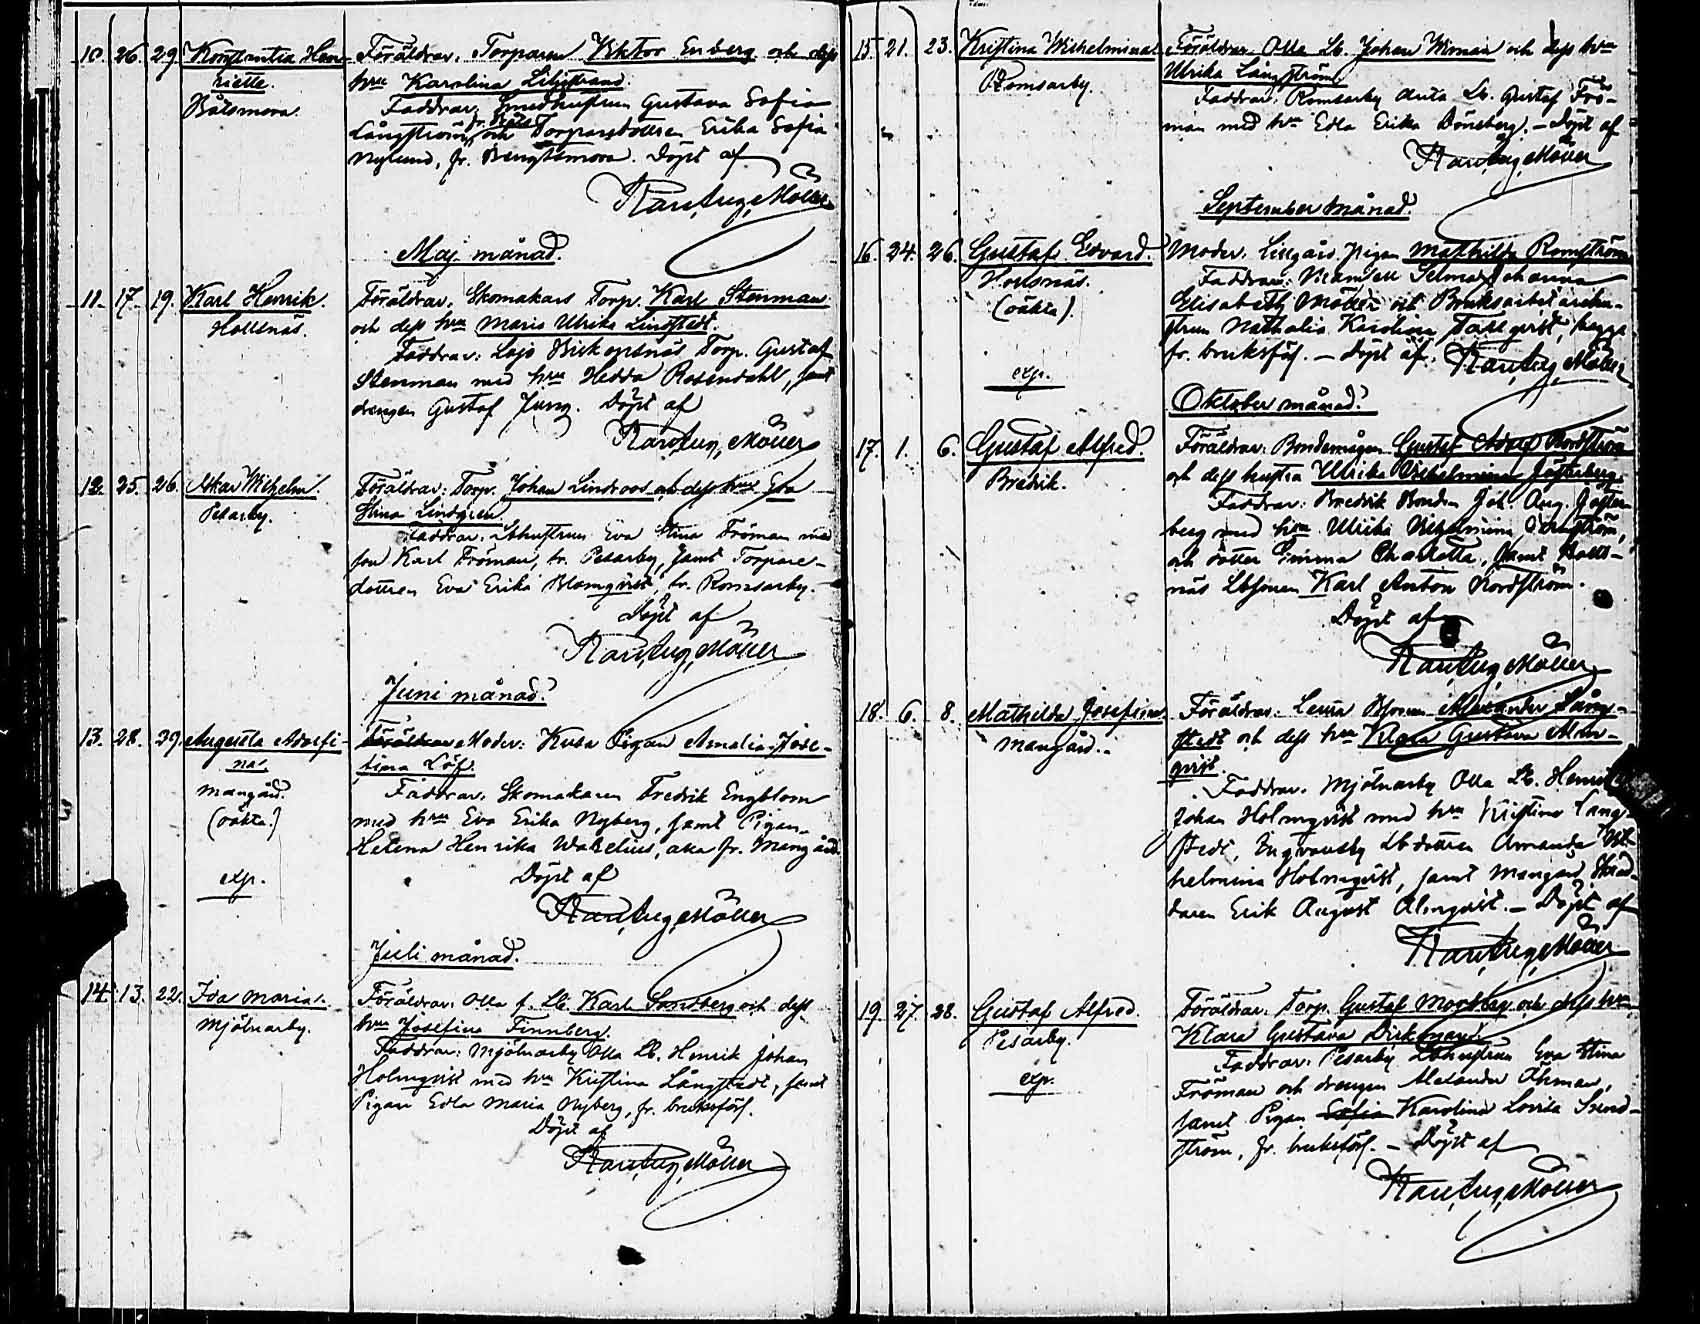 10. 26. 29. Konstantia Hen- Föräldrar. Torparen Viktor Enberg och dess
riette. hru Karolina Liljstrand.
Båtsmora. Faddrar. Smedhustrun Gustava Sofia
Långström, och Torparedottren Erika Sofia
Nylund, fr. Bengtsmora. Döpt af
Karl Aug. Möller
Maj månad.
11. 17. 19. Karl Henrik. Föräldrar. Skomakars Torp. Karl Stenman
Hollsnäs. och dess hru Maria Ulrika Lindstedt.
Faddrar: Lajo Biskopsnäs Torp. Gustaf
Stenman med hru Hedda Rosendahl, samt
drengen Gustaf Jung. Döpt af
Karl Aug. Möller
12. 25. 26. Oskar Wilhelm. Föräldrar: Torp. Johan Lindroos och dess hru Eva
Pesarby. Stina Lindgren
Faddrar. Lbhustrun Eva Stina Fröman med
son Karl Fröman, fr. Pesarby, samt Torpare-
dottren Eva Erika Blomqvist, fr. Romsarby.
Döpt af
Karl Aug. Möller
Juni månad.
13. 28. 29. Augusta Adolfi- Föräldrar Moder: Kusa Pigan Amalia Jose-
na. fina Löf.
mangård. Faddrar. Skomakaren Fredrik Engblom
(oäkta.) med hru Eva Erika Nyberg, samt Pigan
Helena Henrika Wakelius, alla fr. Mangård.
exp. Döpt af
Karl Aug. Möller
Juli månad.
14. 13. 22. Ida Maria. Föräldrar. Olla f. Lb. Karl Sandberg och dess
Mjölnarby. hru Josefina Finnberg.
Faddrar: Mjölnarby Olla Lb. Henrik Johan
Holmqvist med hru Kristina Långstedt, samt
Pigan Edla Maria Nyberg, fr. bruksförs.
Döpt af
Karl Aug. Möller
15. 21. 23. Kristina Wilhelmina. Föräldrar. Olla Lb. Johan Wiman och dess hru
Romsarby. Ulrika Långström
Faddrar. Romsarby Lb. Gustaf Frö-
man med hru Edla Erika Dönsberg. — Döpt af
Karl Aug. Möller
September månad.
16. 24. 26. Gustaf Edvard. Moder. Lillgårds pigan Mathilda Romström
Hollsnäs. Faddrar. Mamsell Selma Johanna
(oäkta). Elisabeth Möller och Bruksarbetarehu-
strun Nathalia Karolina Tallqvist, begge
fr. bruksförs. — Döpt af. Karl Aug. Möller
exp.
Oktober månad.
17. 1. 6. Gustaf Alfred. Föräldrar. Bondemågen Gustaf Adolf Nordström
Bredvik. och dess hustru Ulrika Wilhelmina Josterberg.
Faddrar: Bredvik Bonden Joh. Aug. Joster-
berg med hru Ulrika Wilhelmina
och dotter Emma Charlotta, samt Rolls-
näs Lbsonen Karl Anton Nordström.
Döpt af
Karl Aug. Möller
18. 6. 8. Mathilda Josefina Föräldrar. Lbsonen Alexander Lång-
mangård. stedt och dess hru Klara Gustava Alm-
qvist.
Faddrar. Mjölnarby Olla Lb. Henrik
Johan Holmqvist med hru Kristina Lång-
stedt, Engvansby Lbdottren Amanda Wil-
helmina Holmqvist, samt Mangård Skräd-
daren Erik August Almqvist. — Döpt af
Karl Aug. Möller
19. 27. 28. Gustaf Alfred. Föräldrar. Torp. Gustaf Mossberg och dess hru
Pesarby. Klara Gustava Dickman.
Faddrar. Pesarby Lbhustrun Eva Stina
exp. Fröman och drengen Alexander Öhman,
samt Pigan Sofia Karolina Lovisa Sund-
ström, fr. bruksförs. — Döpt af
Karl Aug. Möller